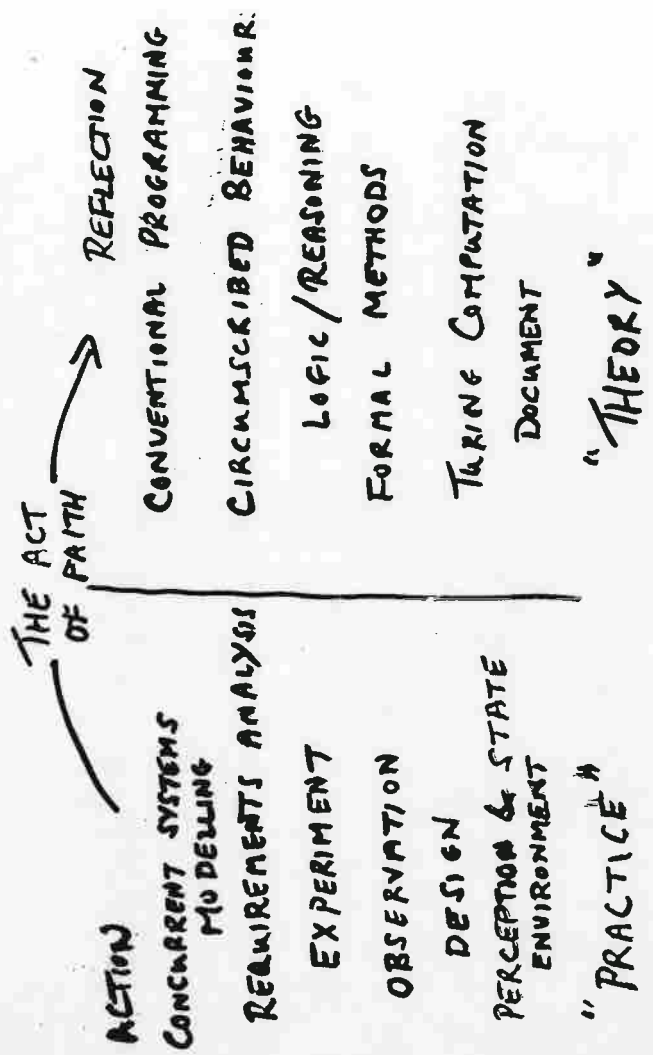 THE ACT
OF FAITH
ACTION
CONCURRENT SYSTEMS
MODELLING
REQUIREMENTS ANALYSIS
EXPERIMENT
OBSERVATION
DESIGN
PERCEPTION & STATE
ENVIRONMENT
"PRACTICE"
REFLECTION
CONVENTIONAL PROGRAMMING
CIRCUMSCRIBED BEHAVIOUR.
LOGIC/REASONING
FORMAL METHODS
TURING COMPUTATION
DOCUMENT
"THEORY"